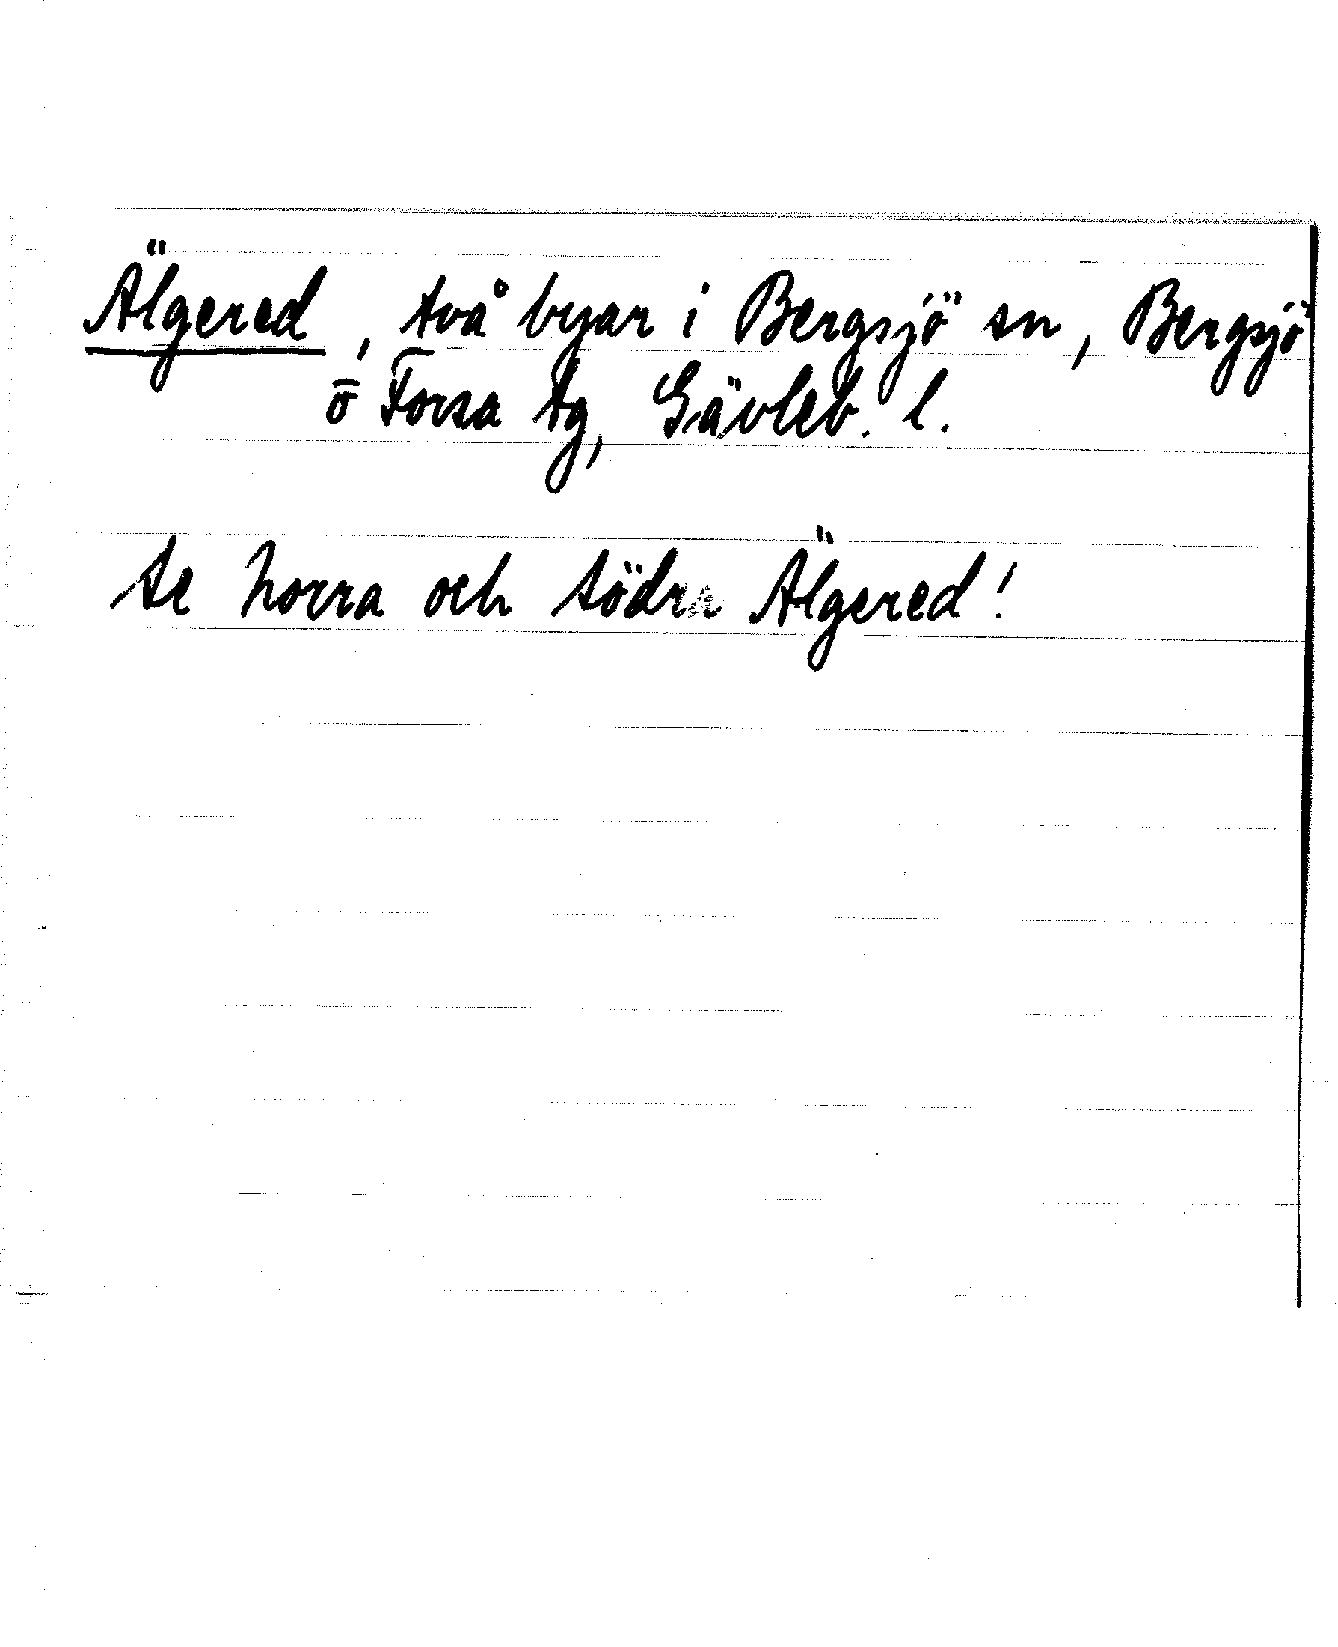 Älgered, två byar i Bergsjö sn, Bergsjö
o Forsa tg, Gävleb. l.
Se Norra och Södra Älgered!